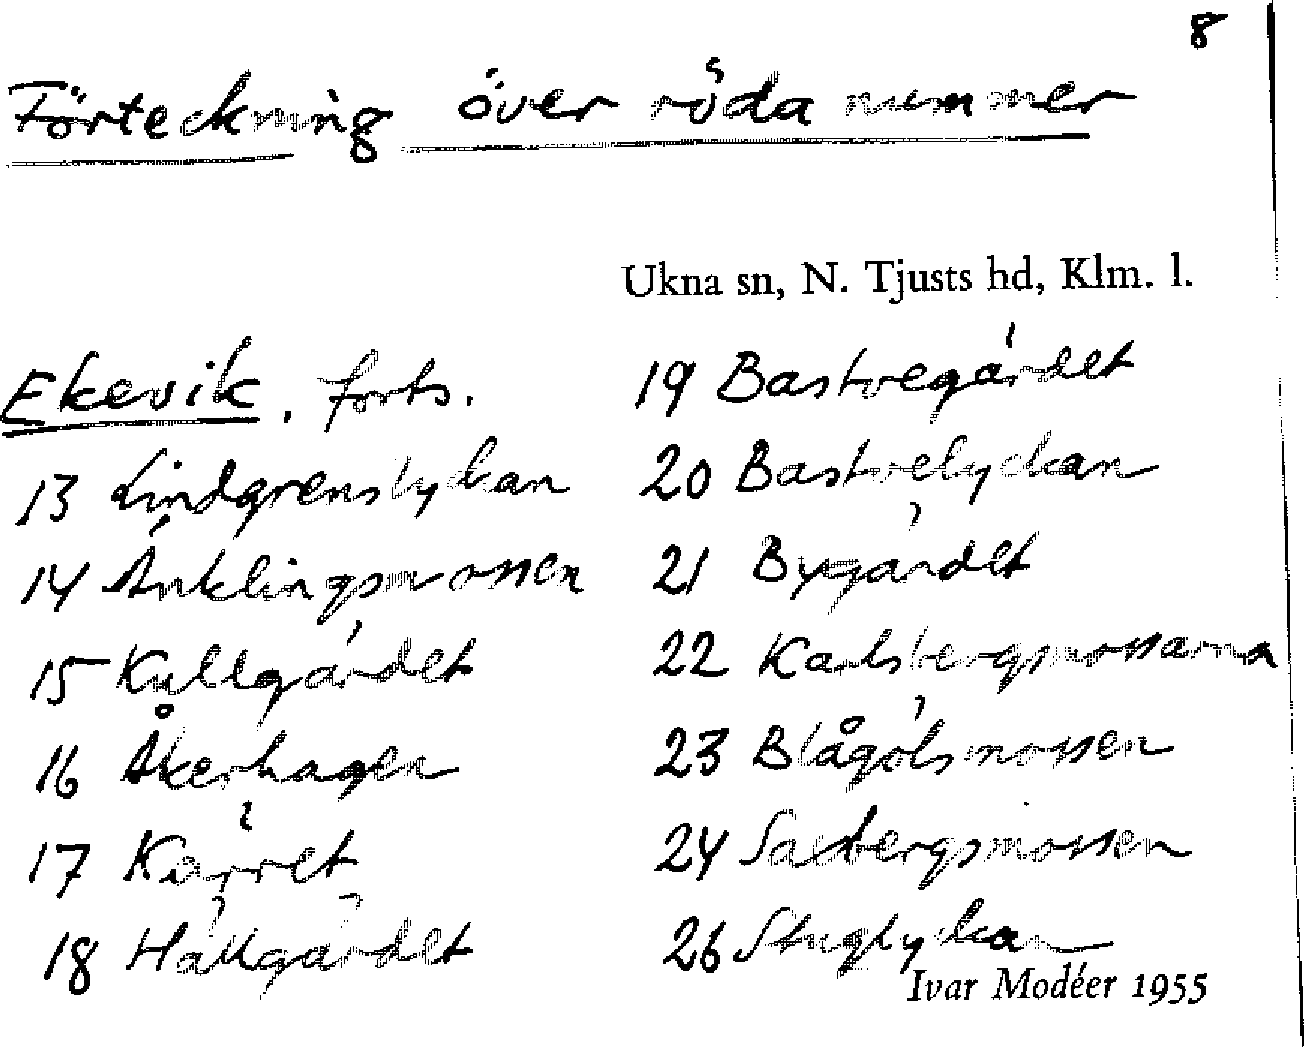 8
Förteckning över röda nummer
Ukna sn, N. Tjusts hd, Klm. l.
Ekevik, forts.
13 Lindgrenslyckan
14 Änklingsmossen
15 Kullgärdet
16 Åkerhagen
17 Kärret
18 Hällgärdet
19 Bastvegärdet
20 Bastvelyckan
21 Bygärdet
22 Karlsbergsmossarna
23 Blågölsmossen
24 Salsbergsmossen
26 Stuglyckan
Ivar Modéer 1955